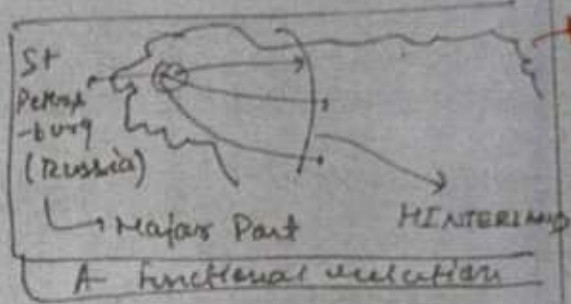 St
Petros
-burg
(Russia)
Major Port
HINTERLAND
A functional relation